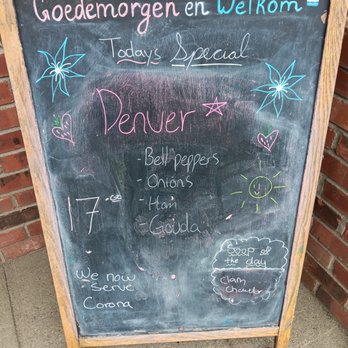 Goedemorgen en Welkom
Todays Special
Denver
- Bell peppers
- Onions
- Ham
- Gouda
17.00
Soup of
the day
Clam
Chowder
We now
- Serve
Corona